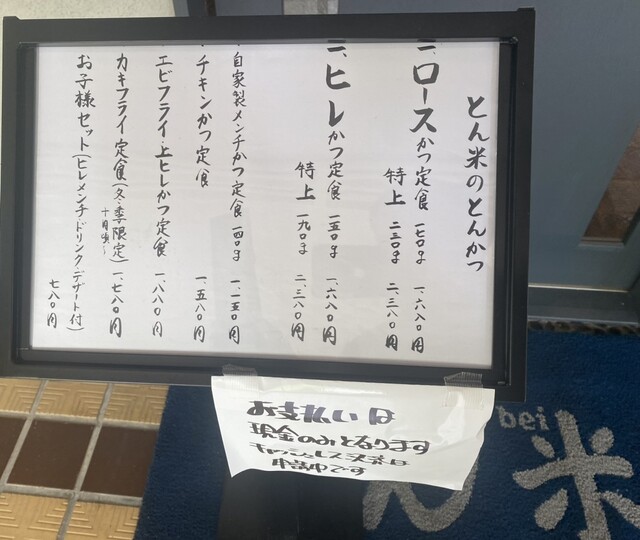 とん米のとんかつ
一、ロースかつ定食 一七〇g 一、六八〇円
特上 二三〇g 二、三八〇円
二、ヒレかつ定食 一五〇g 一、六八〇円
特上 一九〇g 二、三八〇円
・自家製メンチかつ定食 一四〇g 一、一五〇円
・チキンかつ定食 一、五八〇円
エビフライ・上ヒレかつ定食 一、八八〇円
カキフライ定食(冬季限定) 一、七八〇円
十月頃〜
お子様セット(ヒレメンチ・ドリンク・デザート付) 七八〇円
お支払いは
現金のみとなります
キャッシュレス決済は
申請中です
bei
ん米